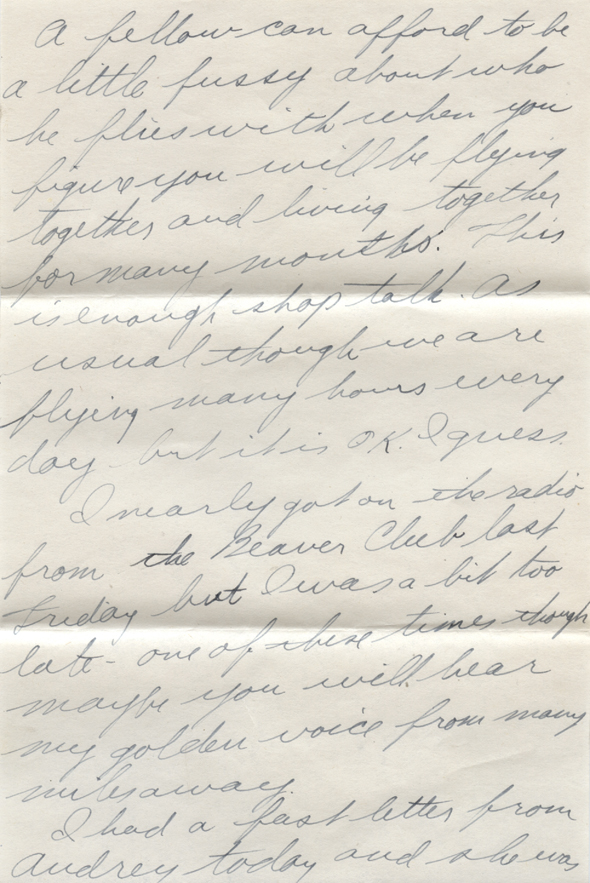 A fellow can afford to be
a little fussy about who
he flies with when you
figure you will be flying
together and living together
for many months. This
is enough shop talk. As
usual though we are
flying many hours every
day - but it is OK. I guess.
I nearly got on the radio
from the Beaver Club last
Friday but I was a bit too
late - one of these times though
maybe you will hear
my golden voice from many
miles away.
I had a fast letter from
Audrey today and she was